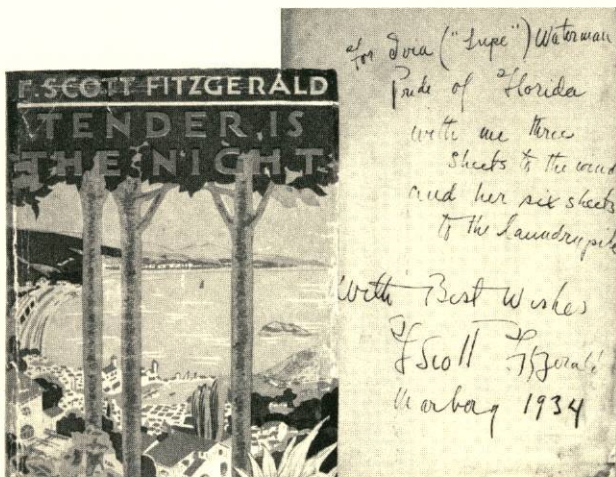 F. SCOTT FITZGERALD
TENDER IS
THE NIGHT
For ("Lupe") Waterman
Pride of Florida
with me three
sheets to the wind
and her six sheets
to the laundrypile
With Best Wishes
F Scott Fitzgerald
1934